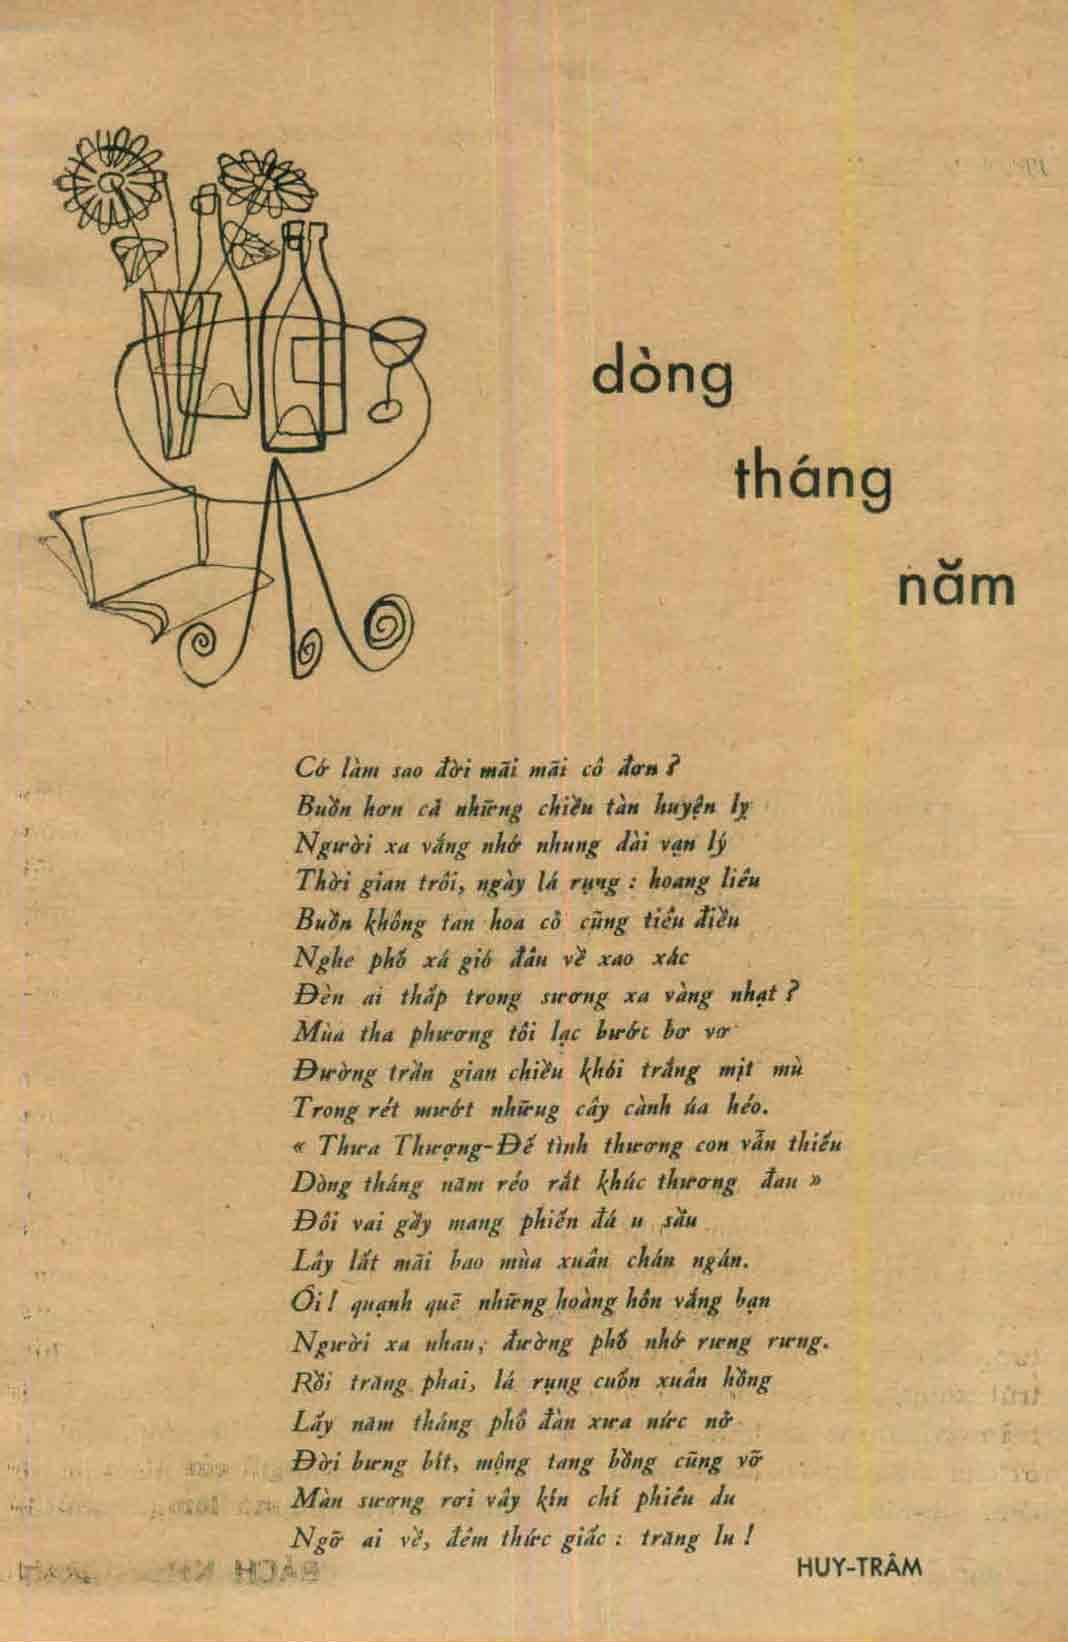 dòng
tháng
năm
Cớ làm sao đời mãi mãi cô đơn ?
Buồn hơn cả những chiều tàn huyện lỵ
Người xa vắng nhớ nhung dài vạn lý
Thời gian trôi, ngày lá rụng : hoang liêu
Buồn không tan hoa cỏ cũng tiêu điều
Nghe phố xá gió đâu về xao xác
Đèn ai thắp trong sương xa vàng nhạt ?
Mùa tha phương tôi lạc bước bơ vơ
Đường trần gian chiều khói trắng mịt mù
Trong rét mướt những cây cành úa héo.
« Thưa Thượng-Đế tình thương con vẫn thiếu
Dòng tháng năm réo rắt khúc thương đau »
Đôi vai gầy mang phiến đá u sầu
Lây lất mãi bao mùa xuân chán ngán.
Ôi ! quạnh quẽ những hoàng hôn vắng bạn
Người xa nhau, đường phố nhớ rưng rưng.
Rồi trăng phai, lá rụng cuốn xuân hồng
Lấy năm tháng phổ đàn xưa nức nở
Đời bưng bít, mộng tang bồng cũng vỡ
Màn sương rơi vây kín chí phiêu du
Ngỡ ai về, đêm thức giấc : trăng lu !
HUY-TRÂM